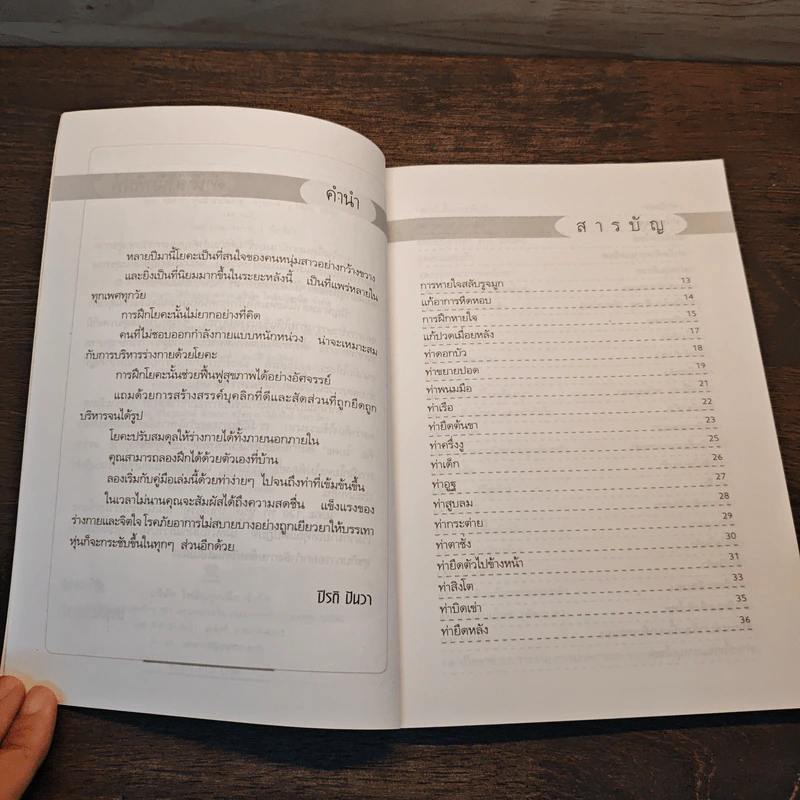 คำนำ
หลายปีมานี้โยคะเป็นที่สนใจของคนหนุ่มสาวอย่างกว้างขวาง
และยิ่งเป็นที่นิยมมากขึ้นในระยะหลังนี้ เป็นที่แพร่หลายใน
ทุกเพศทุกวัย
การฝึกโยคะนั้นไม่ยากอย่างที่คิด
คนที่ไม่ชอบออกกำลังกายแบบหนักหน่วง น่าจะเหมาะสม
กับการบริหารร่างกายด้วยโยคะ
การฝึกโยคะนั้นช่วยฟื้นฟูสุขภาพได้อย่างอัศจรรย์
แถมด้วยการสร้างสรรค์บุคลิกที่ดีและสัดส่วนที่ถูกยืดถูก
บริหารจนได้รูป
โยคะปรับสมดุลให้ร่างกายได้ทั้งภายนอกภายใน
คุณสามารถลองฝึกได้ด้วยตัวเองที่บ้าน
ลองเริ่มกับคู่มือเล่มนี้ด้วยท่าง่ายๆ ไปจนถึงท่าที่เข้มข้นขึ้น
ในเวลาไม่นานคุณจะสัมผัสได้ถึงความสดชื่น แข็งแรงของ
ร่างกายและจิตใจ โรคภัยอาการไม่สบายบางอย่างถูกเยียวยาให้บรรเทา
หุ่นก็จะกระชับขึ้นในทุกๆ ส่วนอีกด้วย
ปิรติ ปันวา
สารบัญ
การหายใจสลับรูจมูก 13
แก้อาการหืดหอบ 14
การฝึกหายใจ 15
แก้ปวดเมื่อยหลัง 17
ท่าดอกบัว 18
ท่าขยายปอด 19
ท่าพนมมือ 21
ท่าเรือ 22
ท่ายืดต้นขา 23
ท่าครึ่งงู 25
ท่าเด็ก 26
ท่าอูฐ 27
ท่าสูบลม 28
ท่ากระต่าย 29
ท่าตาชั่ง 30
ท่ายืดตัวไปข้างหน้า 31
ท่าสิงโต 33
ท่าบิดเข่า 35
ท่ายืดหลัง 36